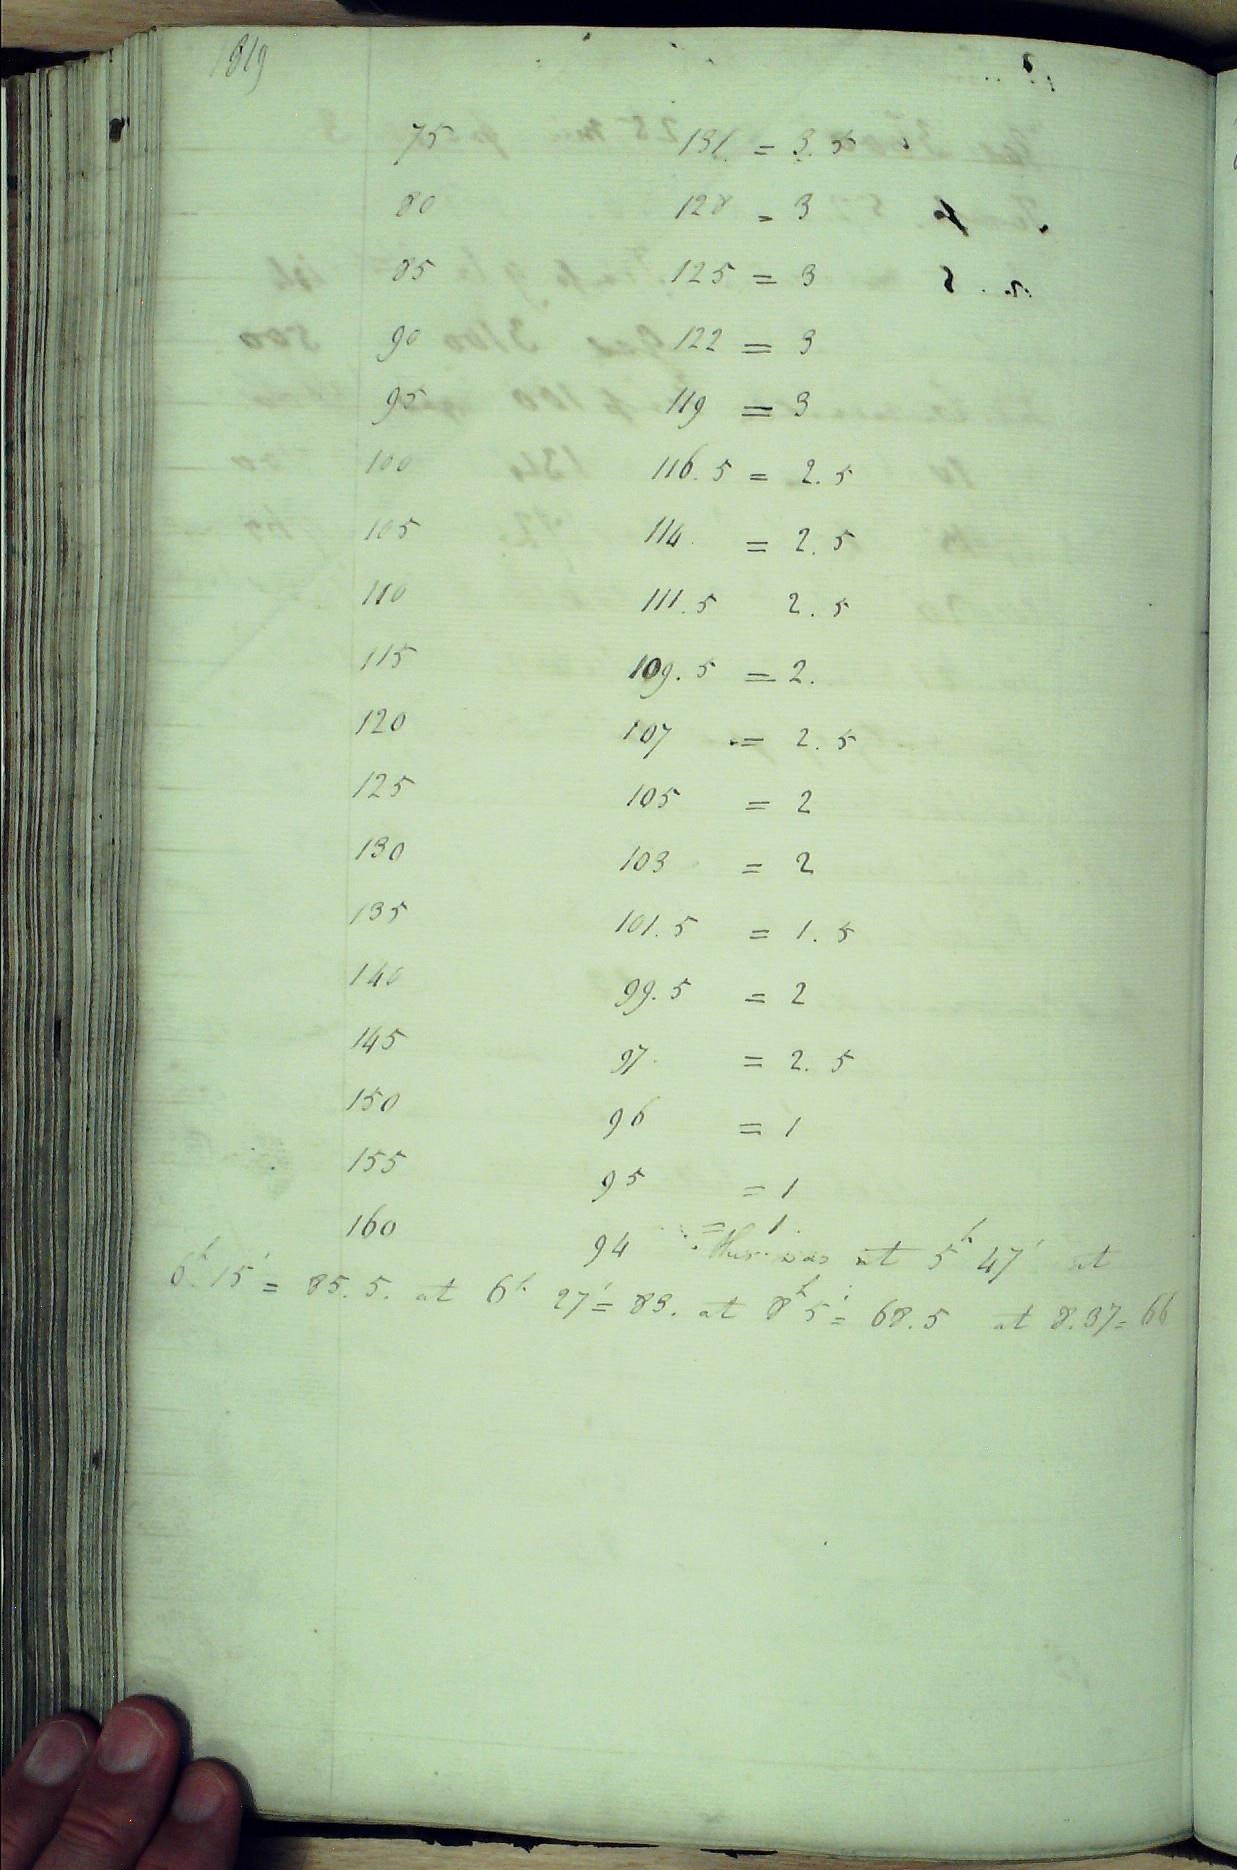 1819
75 131. = 3.5
80 128 = 3
85 125 = 3
90 122 = 3
95 119 = 3
100 116.5 = 2.5
105 114. = 2.5
110 111.5 2.5
115 109.5 = 2.
120 107 = 2.5
125 105 = 2
130 103 = 2
135 101.5 = 1.5
140 99.5 = 2
145 97. = 2.5
150 96 = 1
155 95 = 1
160 94 = 1.
this was at 5h 47' at
6h 15' = 85.5. at 6h 27' = 83. at 8h 5' = 68.5 at 8.37 = 66